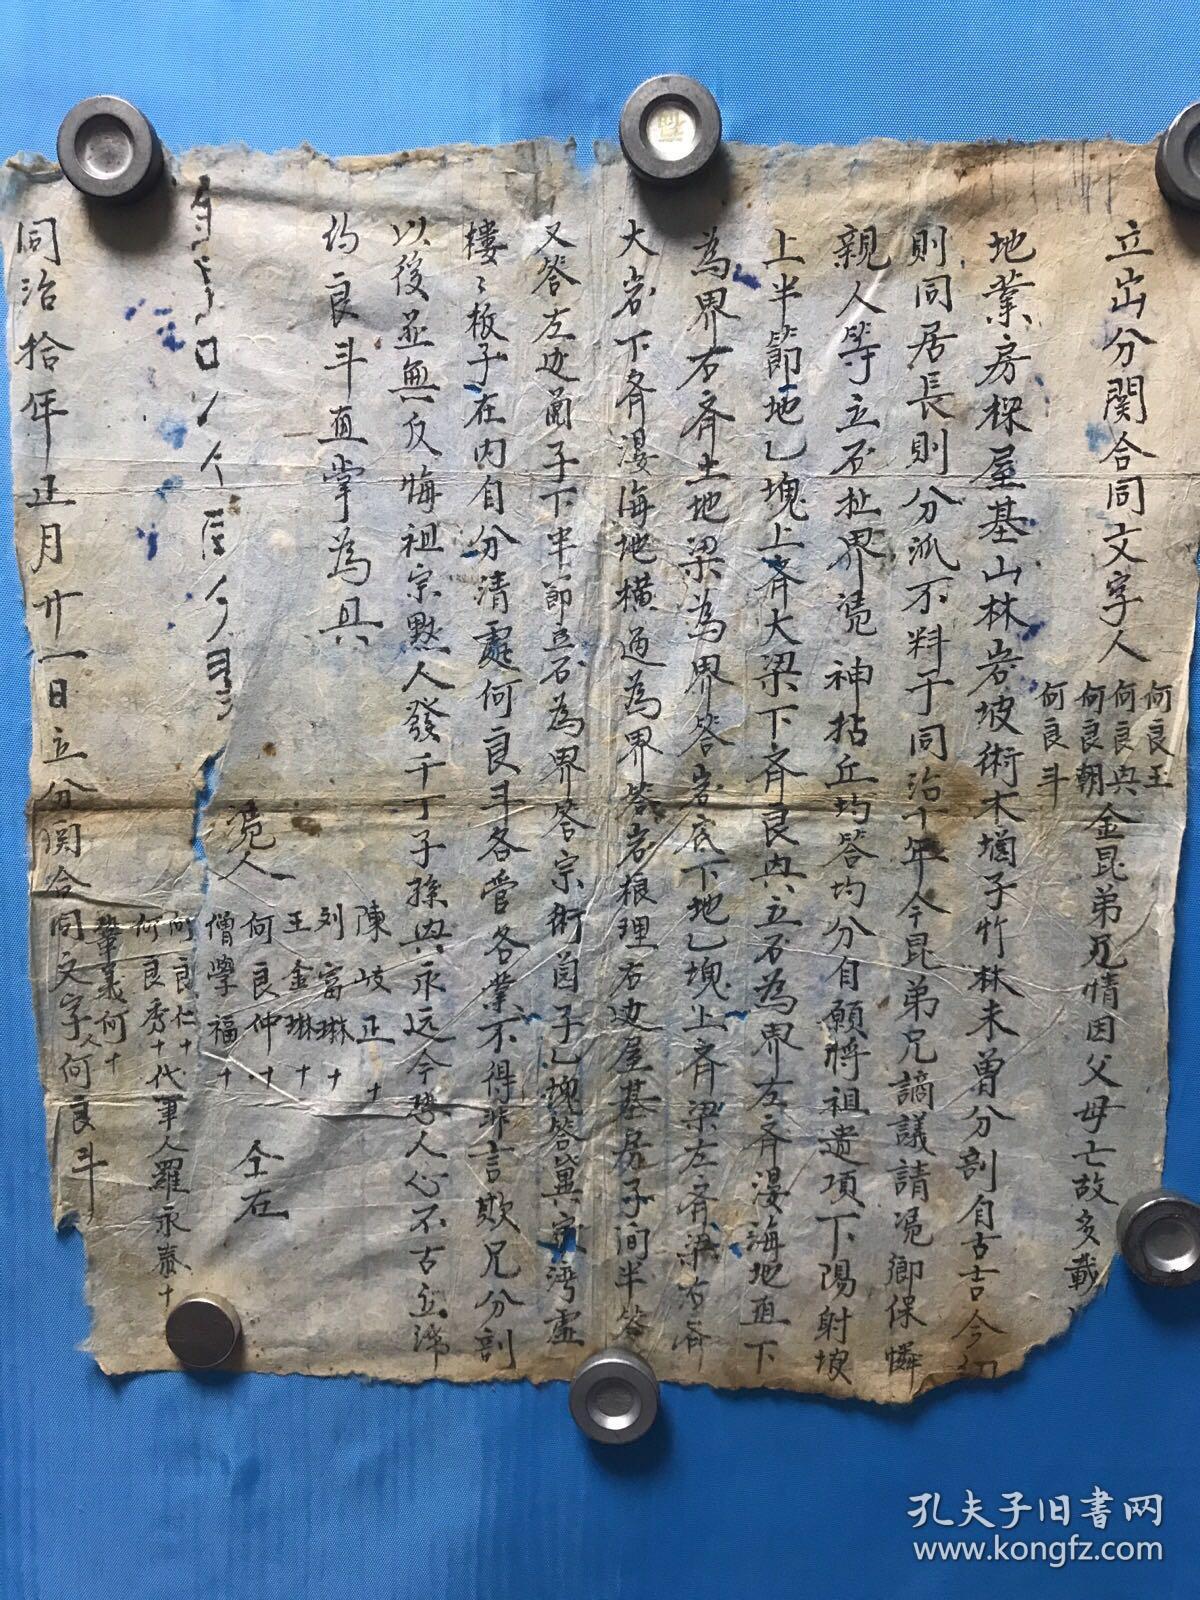 立出分關合同文字人
何良玉
何良興
何良朝
何良斗
金昆弟兄情因父母亡故多載
地業房樑屋基山林岩坡術木墙子竹林未曾分剖自古吉今
則同居長則分派不料于同治十年今昆弟兄謫議請凴鄉保憐
親人等立石扯界凴神拈丘均答均分自願將祖遺項下陽射坡
上半節地乙塊上齊大梁下齊良興立石為界左齊漫海地直下
為界右齊土地梁為界答岩底下地乙塊上齊梁左齊梁右齊
大岩下齊漫海地橫過為界答岩根理右边屋基房子间半答
又答左边菌子下半節立石為界答宗術茵子乙塊答冀家湾盧
樓々板子在内自分清處何良斗各管各業不得非言欺兄分剖
以後並無反悔祖宗黙人發千丁子孫興永远今恐人心不古立
約良斗直掌為具
凴人
陳岐正十
列富琳十
王金琳十
何良仲十
僧學福十
仝在
何良仁十
何良秀十
代筆人羅永泰十
義何十
同治拾年正月廿一日立分関合同文字人何良斗
孔夫子旧书网
www.kongfz.com